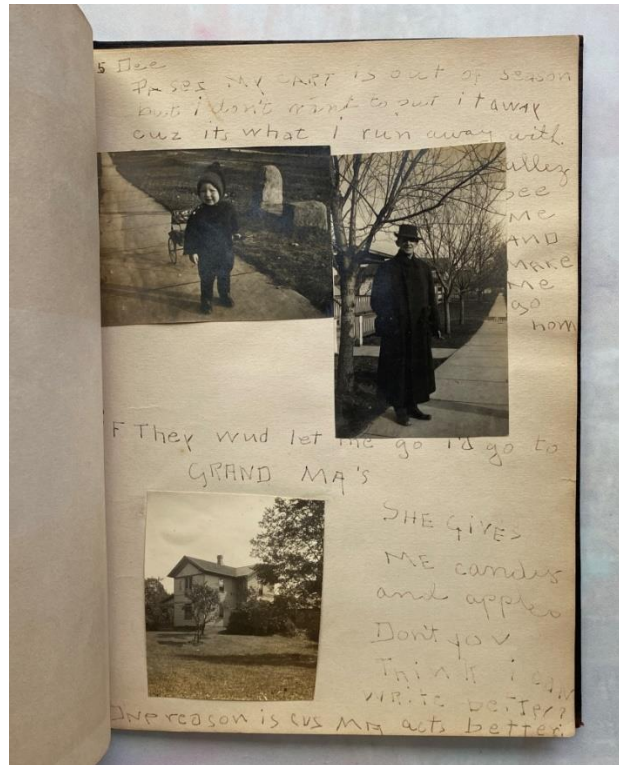 5 Dec
PA SES MY CART is out of season
but i don't want to put it away
cuz its what i run away with
see
me
AND
make
me
go
hom
F They wud let me go i'd go to
GRAND MA'S
SHE GIVES
ME candys
and apples
Don't you
Think i can
write better?
One reason is cus MA acts better.